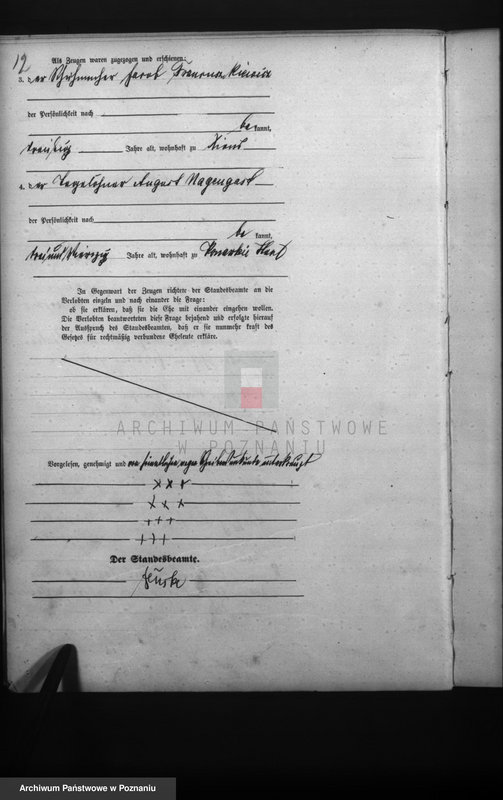 12
Als Zeugen waren zugezogen und erschienen:
3. der Jacob
der Persönlichkeit nach
be kannt,
dreißig Jahre alt, wohnhaft zu
4. der Tagelöhner August Nagengast
der Persönlichkeit nach
be kannt,
dreiundvierzig Jahre alt, wohnhaft zu
In Gegenwart der Zeugen richtete der Standesbeamte an die
Verlobten einzeln und nach einander die Frage:
ob sie erklären, daß sie die Ehe mit einander eingehen wollen.
Die Verlobten beantworteten diese Frage bejahend und erfolgte hierauf
der Ausspruch des Standesbeamten, daß er sie nunmehr kraft des
Gesetzes für rechtmäßig verbundene Eheleute erkläre.
ARCHIWUM PAŃSTWOWE
W POZNANIU
Vorgelesen, genehmigt und von sämmtlichen wegen unterkreuzt
x x x
x x x
+ + +
+ + +
Der Standesbeamte.
Archiwum Państwowe w Poznaniu